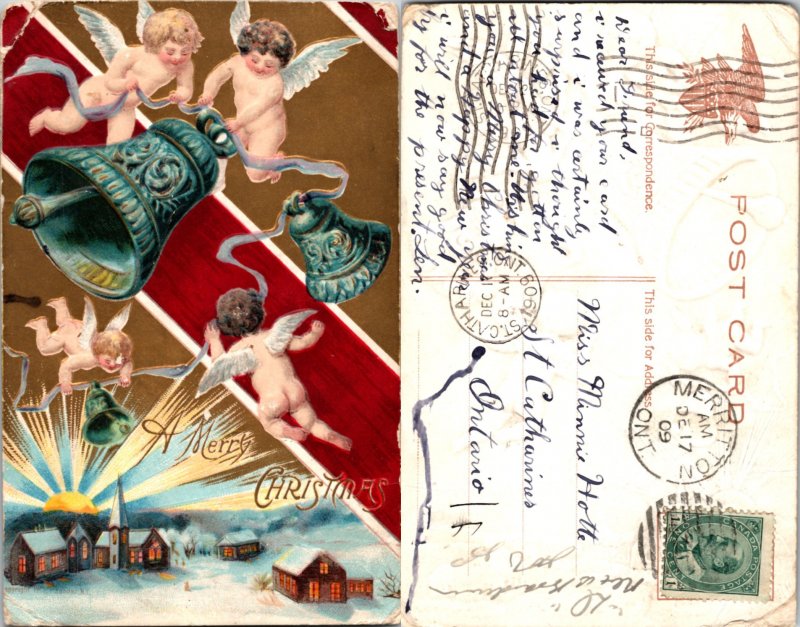 A Merry
CHRISTMAS
POST CARD
This side for Correspondence.
This side for Address.
Dear Friend,
i received your card
and i was certainly
surprised i thought
you had forgotten
all about me. Wishing
you a Merry Christmas
and a Happy New Year
i will now say good
by for the present. Len.
Miss Minnie Hotte
St Catharines
Ontario
MERRITTON
AM
DE 17
09
ONT
ST. CATHARINES
8-AM
DEC 17
09
ONT
CANADA POSTAGE